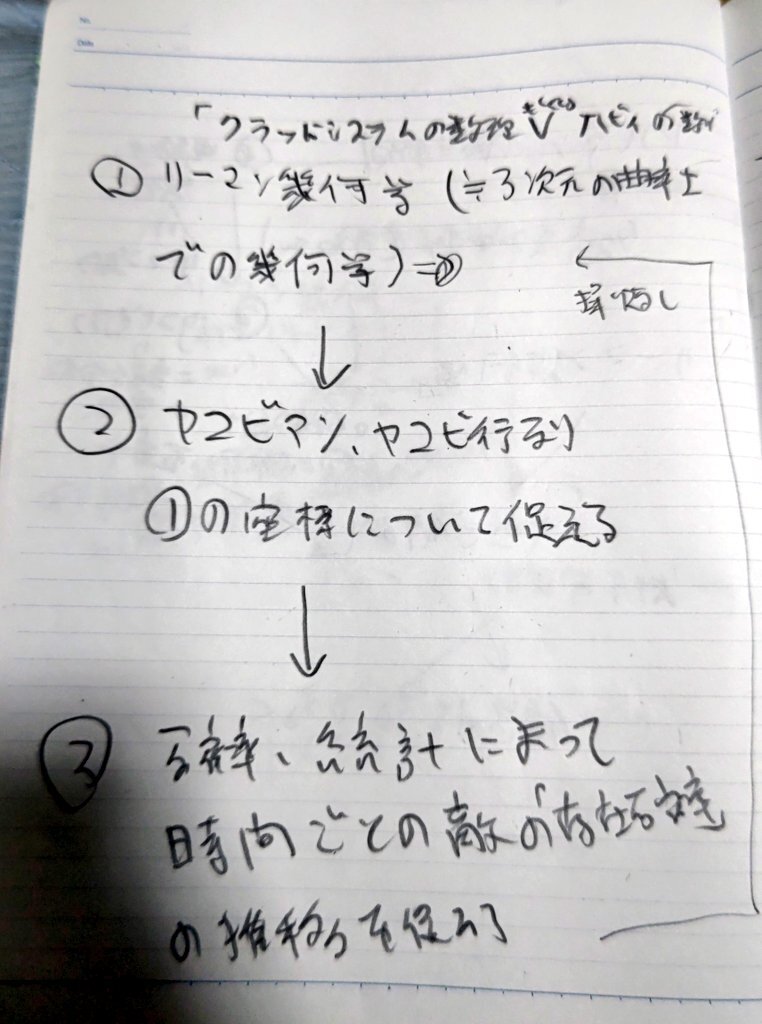 No.
Date
「クラッドシステムの数理
① リーマン幾何学 (≒3次元の曲率上
での幾何学)
繰り返し
② ヤコビアン、ヤコビ行列
①の座標について促える
③ 確率、統計によって
時間ごとの敵の「存在る確率
の推移」を促える